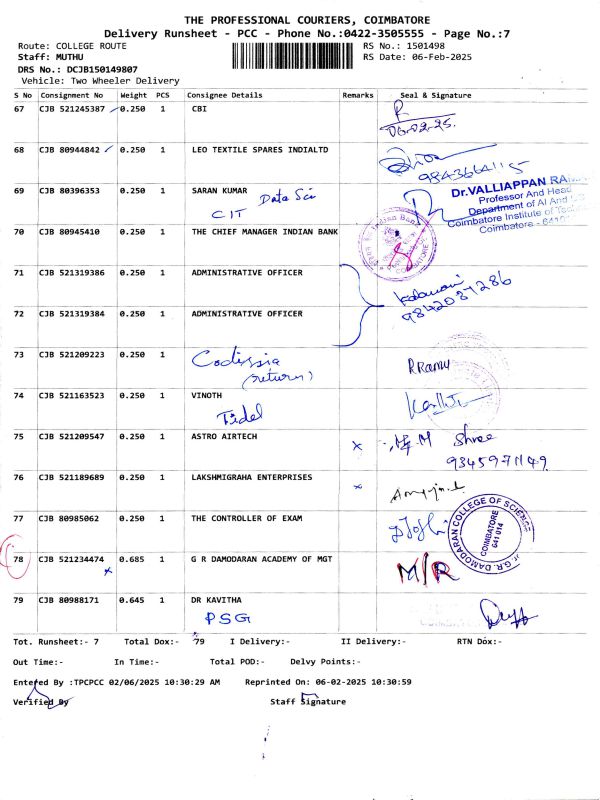 THE PROFESSIONAL COURIERS, COIMBATORE
Delivery Runsheet - PCC - Phone No.:0422-3505555 - Page No.:7
Route: COLLEGE ROUTE RS No.: 1501498
Staff: MUTHU RS Date: 06-Feb-2025
DRS No.: DCJB150149807
Vehicle: Two Wheeler Delivery
S No Consignment No Weight PCS Consignee Details Remarks Seal & Signature
67 CJB 521245387 0.250 1 CBI
06-02-25.
68 CJB 80944842 0.250 1 LEO TEXTILE SPARES INDIALTD
69 CJB 80396353 0.250 1 SARAN KUMAR Data Sci
CIT
Dr.VALLIAPPAN
Professor And Head
Department of AI And
Coimbatore Institute of
Coimbatore - 6410
70 CJB 80945410 0.250 1 THE CHIEF MANAGER INDIAN BANK
Indian Bank
COIMBATORE
71 CJB 521319386 0.250 1 ADMINISTRATIVE OFFICER
9842037286
72 CJB 521319384 0.250 1 ADMINISTRATIVE OFFICER
73 CJB 521209223 0.250 1 Codissia
(return)
R Ramu
74 CJB 521163523 0.250 1 VINOTH
Tidel
75 CJB 521209547 0.250 1 ASTRO AIRTECH x Shree
9345971149
76 CJB 521189689 0.250 1 LAKSHMIGRAHA ENTERPRISES x
77 CJB 80985062 0.250 1 THE CONTROLLER OF EXAM
Dr. G.R. DAMODARAN COLLEGE OF SCIENCE
COIMBATORE
641 014
78 CJB 521234474 0.685 1 G R DAMODARAN ACADEMY OF MGT M/R
x
79 CJB 80988171 0.645 1 DR KAVITHA
PSG
Tot. Runsheet:- 7 Total Dox:- 79 I Delivery:- II Delivery:- RTN Dox:-
Out Time:- In Time:- Total POD:- Delvy Points:-
Entered By :TPCPCC 02/06/2025 10:30:29 AM Reprinted On: 06-02-2025 10:30:59
Verified By Staff Signature